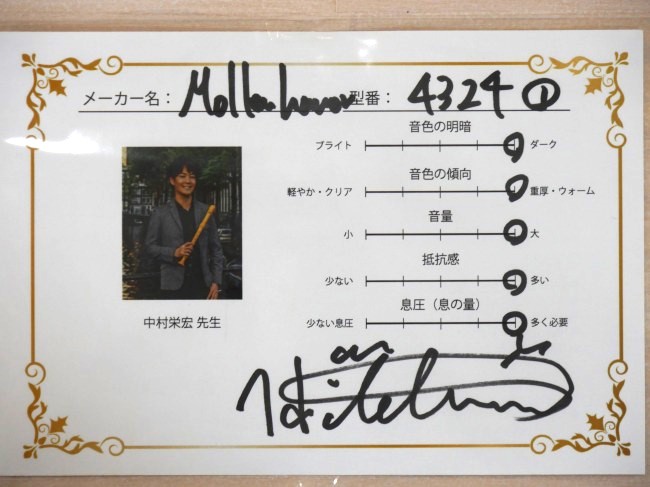 メーカー名: Mollenhauer 型番: 4324 ①
音色の明暗
ブライト ダーク
音色の傾向
軽やか・クリア 重厚・ウォーム
音量
小 大
抵抗感
少ない 多い
息圧（息の量）
少ない息圧 多く必要
中村栄宏 先生